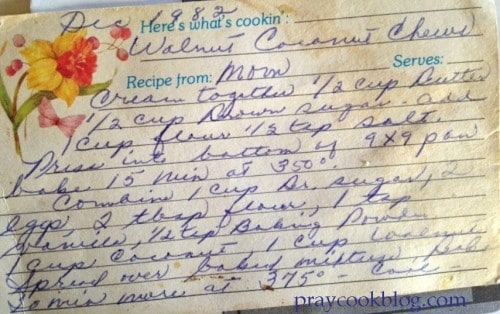 Dec 1982
Here's what's cookin':
Walnut Coconut Chews
Recipe from: Mom Serves:
Cream together 1/2 cup Butter
1/2 cup Brown sugar. add
1 cup flour 1/2 tsp salt.
Press into bottom of 9x9 pan
bake 15 min at 350°.
Combine 1 cup Br. sugar, 2
eggs 2 tbsp flour, 1 tsp
Vanilla, 1/2 tsp Baking Powder
1 cup Coconut 1 cup Walnuts
Spread over baked mixture. Bake
min more at 375° - Cool
praycookblog.com